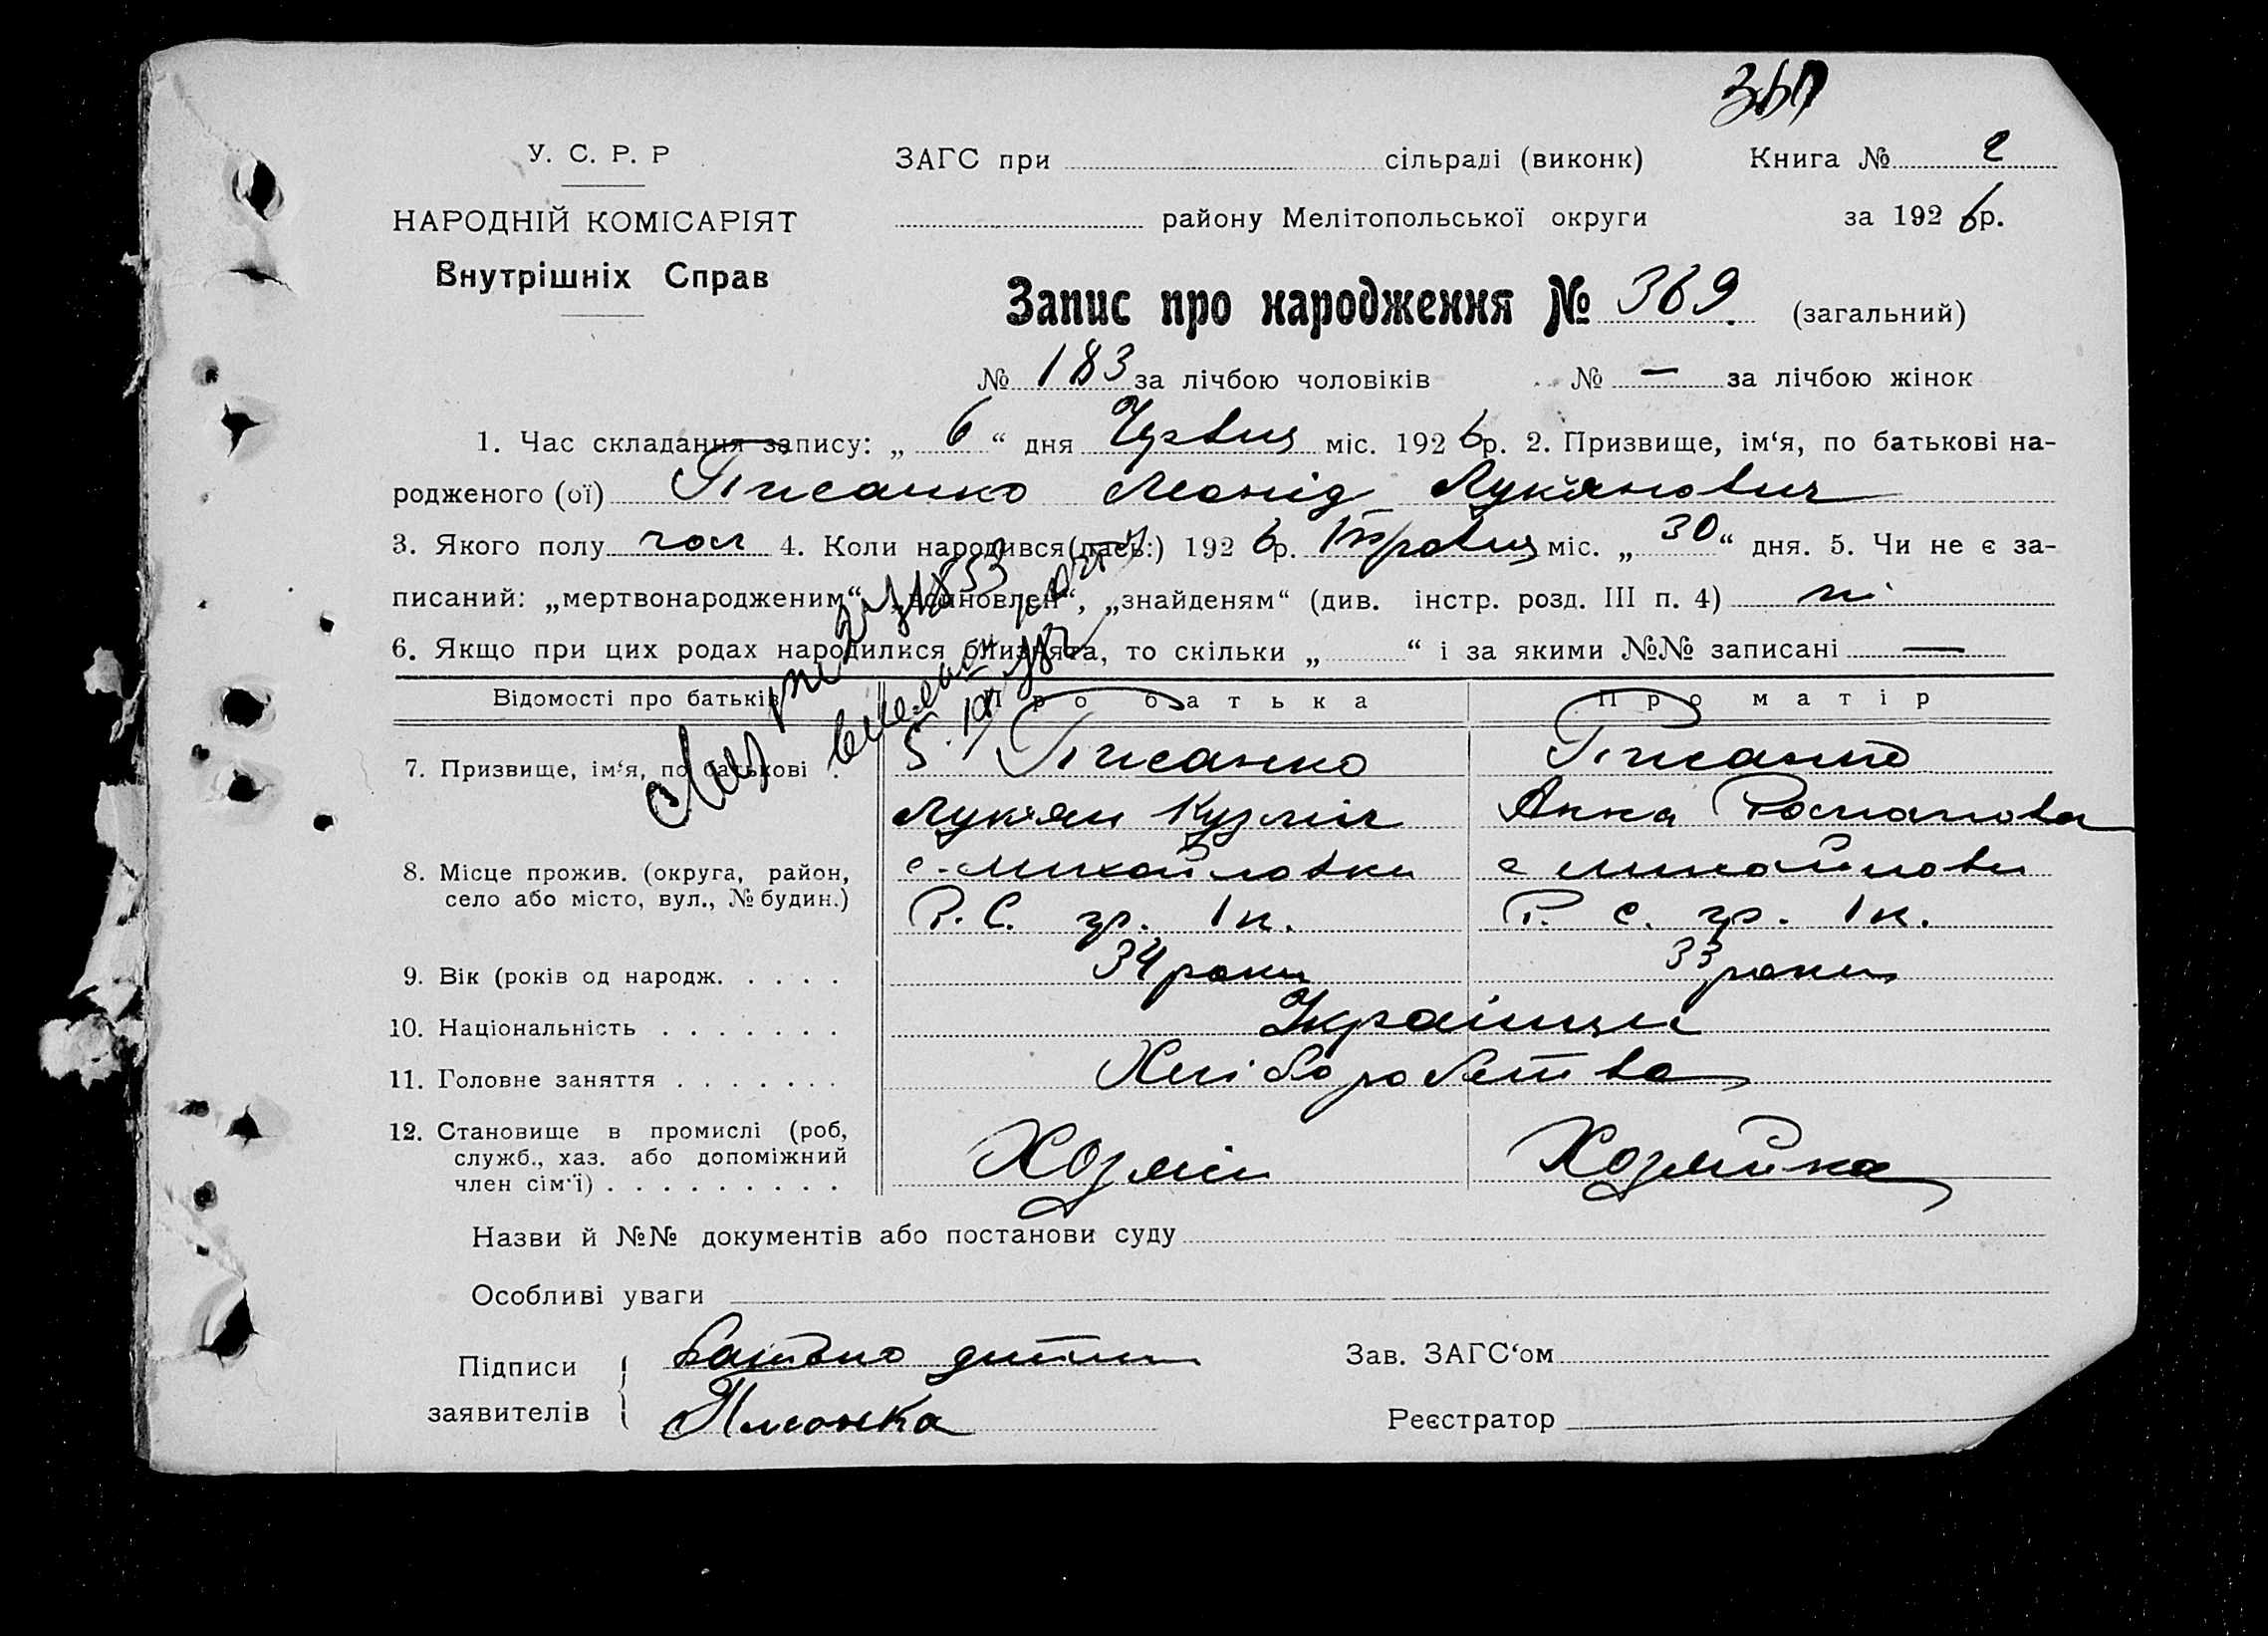 У. С. Р. Р
ЗАГС при сільраді (виконк) Книга № 2
НАРОДНІЙ КОМІСАРІЯТ
району Мелітопольської округи за 1926р.
Внутрішніх Справ
Запис про народження № 369. (загальний)
№ 183 за лічбою чоловіків № — за лічбою жінок
1. Час складання запису: „ 6 “ дня Червця міс. 1926р. 2. Призвище, ім‘я, по батькові на-
родженого (ої) Писанко Леонід Лук'янович
3. Якого полу чол 4. Коли народився(лась:) 1926р. Травця міс. „ 30 “ дня. 5. Чи не є за-
писаний: „мертвонародженим“ „всиновлен“, „знайденям“ (див. інстр. розд. III п. 4) ні
6. Якщо при цих родах народилися близнята, то скільки „ “ і за якими №№ записані —
Відомості про батьків Про батька Про матір
7. Призвище, ім‘я, по батькові . Писанко Писанко
Лук'ян Кузміч Анна Романова
8. Місце прожив. (округа, район, с. Михайловки с Михайловки
село або місто, вул., № будин.) Р. С. гр. 1к. Р. С. гр. 1к.
9. Вік (років од народж. . . . . 34 роки 33 роки
10. Національність . . . . . . . Українци
11. Головне заняття . . . . . . . Хліборобства
12. Становище в промислі (роб,
служб., хаз. або допоміжний Хозяін Хозяйка
член сім‘ї) . . . . . . . . .
Назви й №№ документів або постанови суду
Особливі уваги
Підписи батько дитини Зав. ЗАГС‘ом
заявителів Писанка Реєстратор